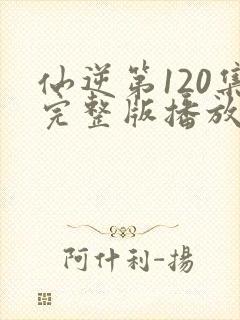 仙逆第120集
完整版播放
阿什利-揚